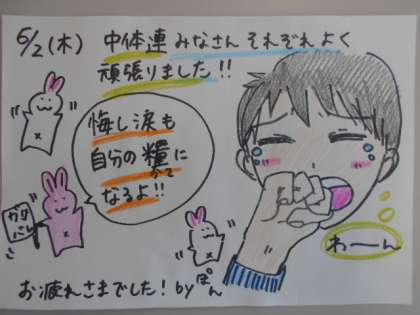 6/2(木) 中体連 みなさん それぞれ よく
頑張りました!!
悔し涙も
自分の糧に
かて
なるよ!!
ガンバレ
わーん
お疲れさまでした! by ぽん